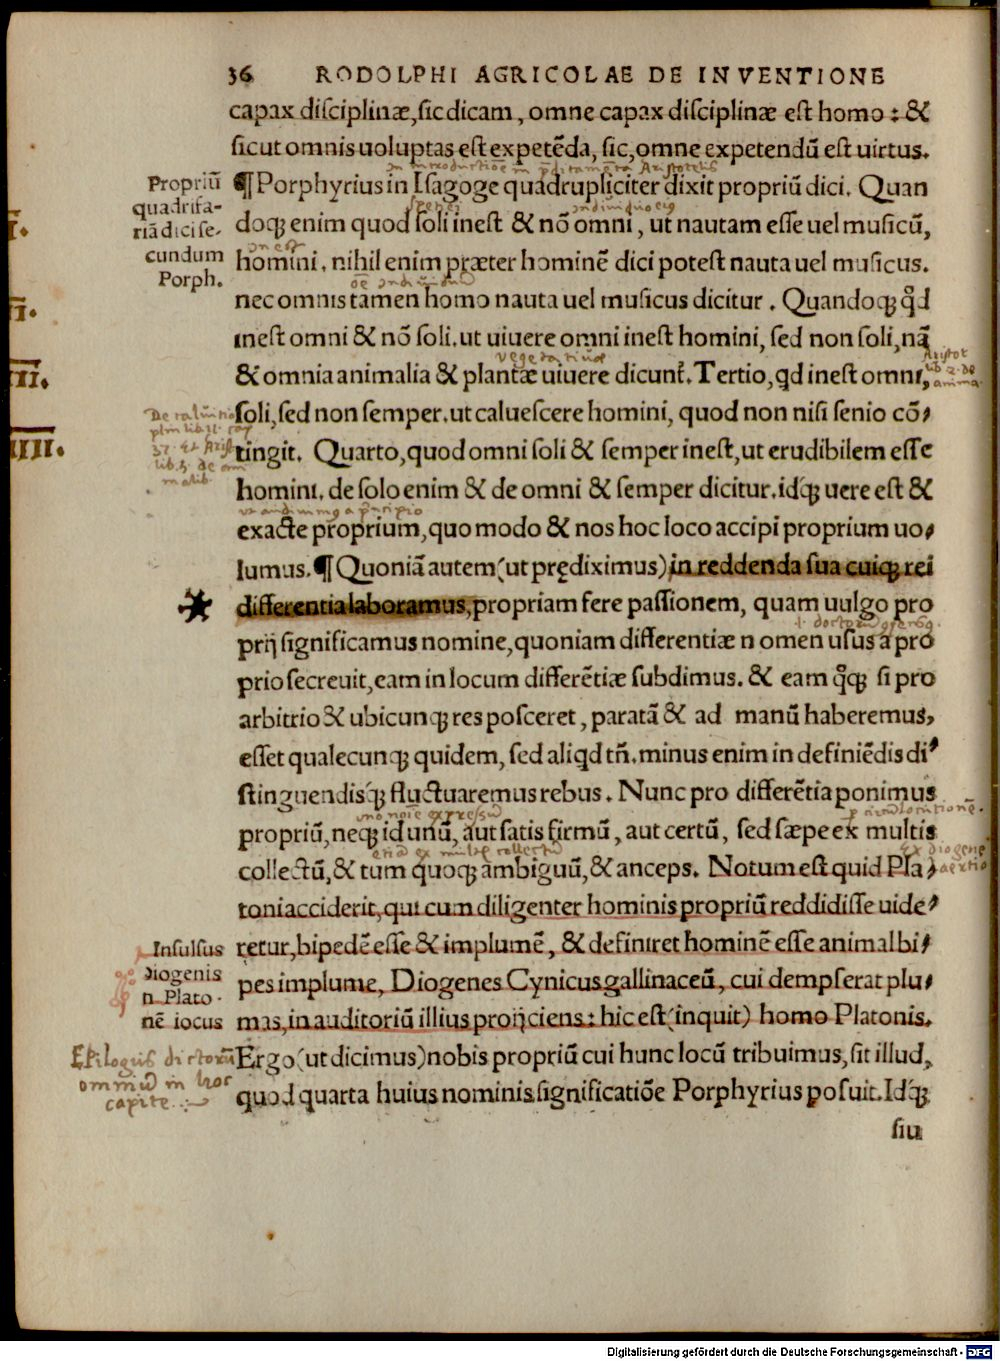 36 RODOLPHI AGRICOLAE DE INVENTIONE
capax disciplinæ,sic dicam, omne capax disciplinæ est homo : &
sicut omnis uoluptas est expetẽda, sic,omne expetendũ est uirtus.
¶Porphyrius in Isagoge quadrupliciter dixit propriũ dici. Quan
doq; enim quod soli inest & nõ omni, ut nautam esse uel musicũ,
homini. nihil enim præter hominẽ dici potest nauta uel musicus.
nec omnis tamen homo nauta uel musicus dicitur. Quandoq; qd̃
inest omni & nõ soli.ut uiuere omni inest homini, sed non soli,nã
& omnia animalia & plantæ uiuere dicunt̃. Tertio,qd inest omni,
soli,sed non semper.ut caluescere homini, quod non nisi senio cõ/
tingit. Quarto,quod omni soli & semper inest,ut erudibilem esse
homini. de solo enim & de omni & semper dicitur.idq; uere est &
exacte proprium,quo modo & nos hoc loco accipi proprium uo/
lumus.¶Quoniã autem(ut prędiximus)in reddenda sua cuiq; rei
differentia laboramus,propriam fere passionem, quam uulgo pro
prij significamus nomine,quoniam differentiæ nomen usus a pro
prio secreuit,eam in locum differẽtiæ subdimus. & eam q̃q; si pro
arbitrio & ubicunq; res posceret, paratã & ad manũ haberemus,
esset qualecunq; quidem, sed aliqd tñ. minus enim in definiẽdis di/
stinguendisq; fluctuaremus rebus. Nunc pro differẽtia ponimus
propriũ,neq; id unũ, aut satis firmũ, aut certũ, sed sæpe ex multis
collectũ,& tum quoq; ambiguũ,& anceps. Notum est quid Pla/
toni acciderit,qui cum diligenter hominis propriũ reddidisse uide/
retur,bipedẽ esse & implumẽ, & definiret hominẽ esse animal bi/
pes implume, Diogenes Cynicus gallinaceũ, cui dempserat plu/
mas,in auditoriũ illius proijciens: hic est(inquit) homo Platonis.
Ergo(ut dicimus)nobis propriũ cui hunc locũ tribuimus,sit illud,
quod quarta huius nominis significatiõe Porphyrius posuit.Idq;
siu
Propriũ
quadrifa-
riã dici se-
cundum
Porph.
I.
II.
III.
IIII.
Insulsus
Diogenis
in Plato-
nẽ iocus
Epilogus dictorũ
omniũ in hoc
capite
Digitalisierung gefördert durch die Deutsche Forschungsgemeinschaft - DFG